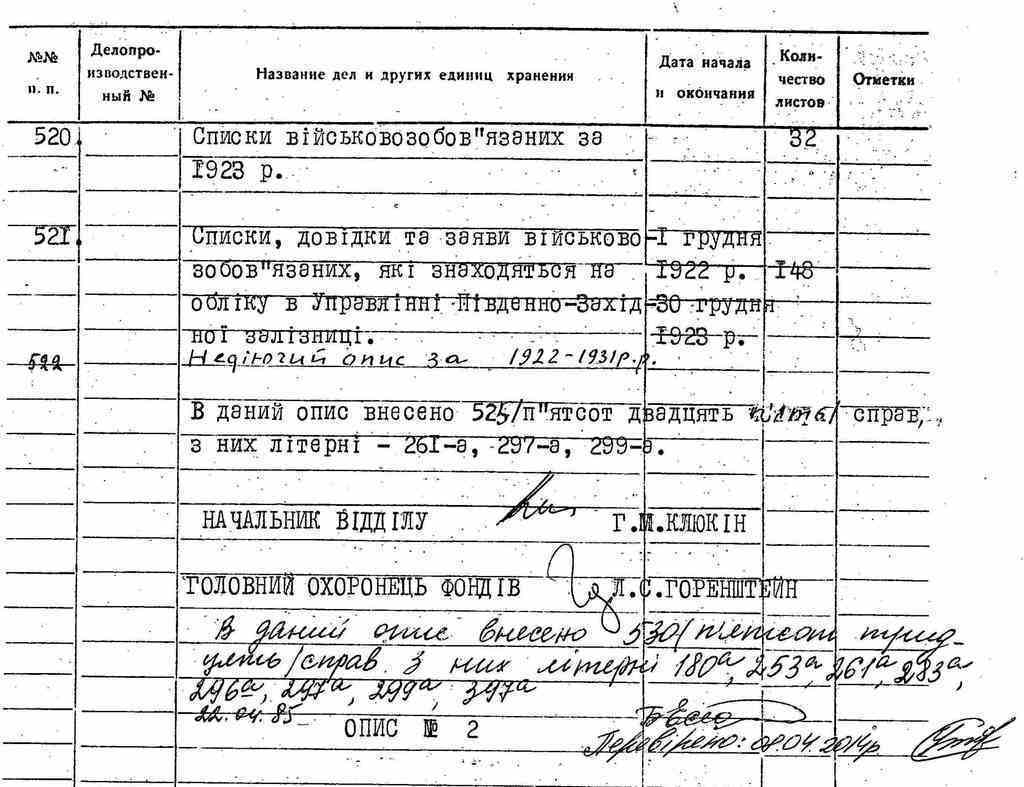 №№ п. п. Делопроизводствен- ный № Название дел и других единиц хранения Дата начала и окончания Коли- чество листов Отметки
520. Списки військовозобов"язаних за 32
1923 р.
521. Списки, довідки та заяви військово- I грудня
зобов"язаних, які знаходяться на 1922 р. 148
обліку в Управлінні Південно-Захід- 30 грудня
ної залізниці. 1923 р.
522 Недіючий опис за 1922-1931р.р.
В даний опис внесено 525/п"ятсот двадцять п'ять/ справ,
з них літерні - 261-а, 297-а, 299-а.
НАЧАЛЬНИК ВІДДІЛУ Г.М.КЛЮКІН
ГОЛОВНИЙ ОХОРОНЕЦЬ ФОНДІВ Л.С.ГОРЕНШТЕЙН
В даний опис внесено 530/п'ятсот трид-
цять/справ з них літерні 180а, 253а, 261а, 283а,
296а, 297а, 299а, 397а
22.04.85
ОПИС № 2
Перевірено: 08.04.2014р.